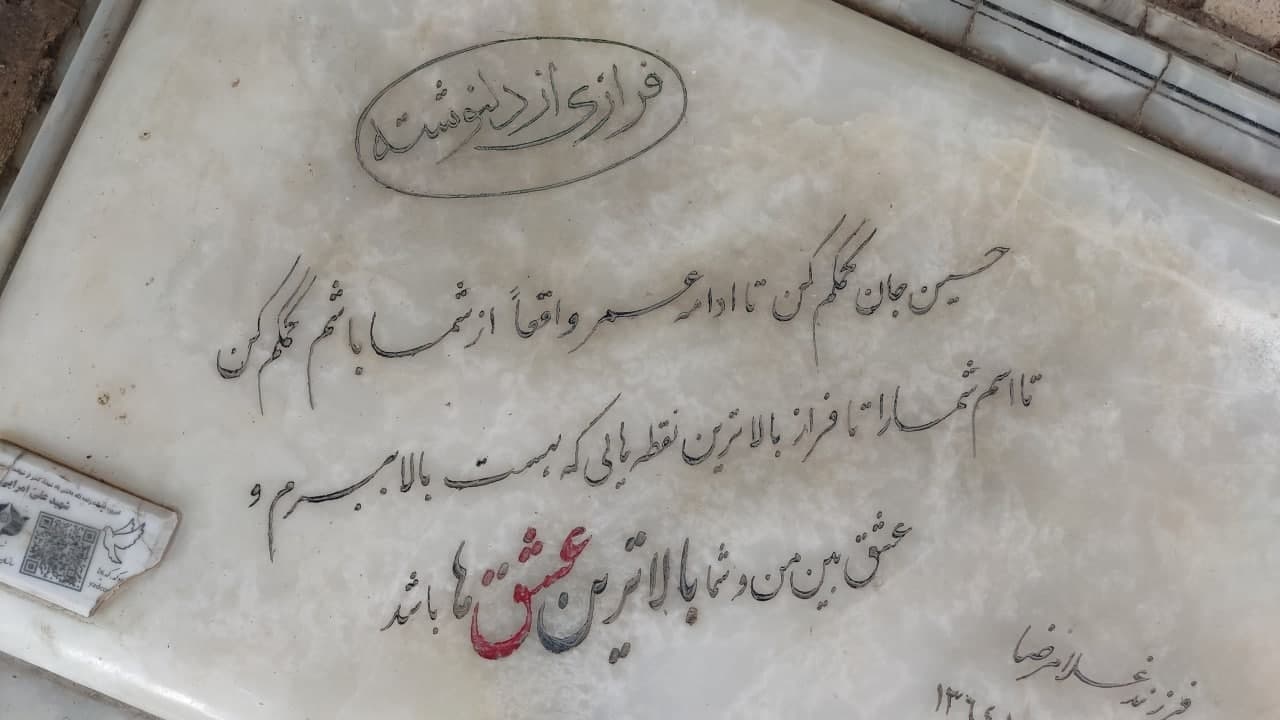 فرازی از دلنوشته
حسین جان کمکم کن تا ادامه عمر واقعاً از شما باشم کمکم کن
تا اسم شما را تا فراز بالاترین نقطه هایی که هست بالا ببرم و
عشق بین من و شما بالاترین عشق ها باشد
فرزند غلامرضا
شهید علی امرایی